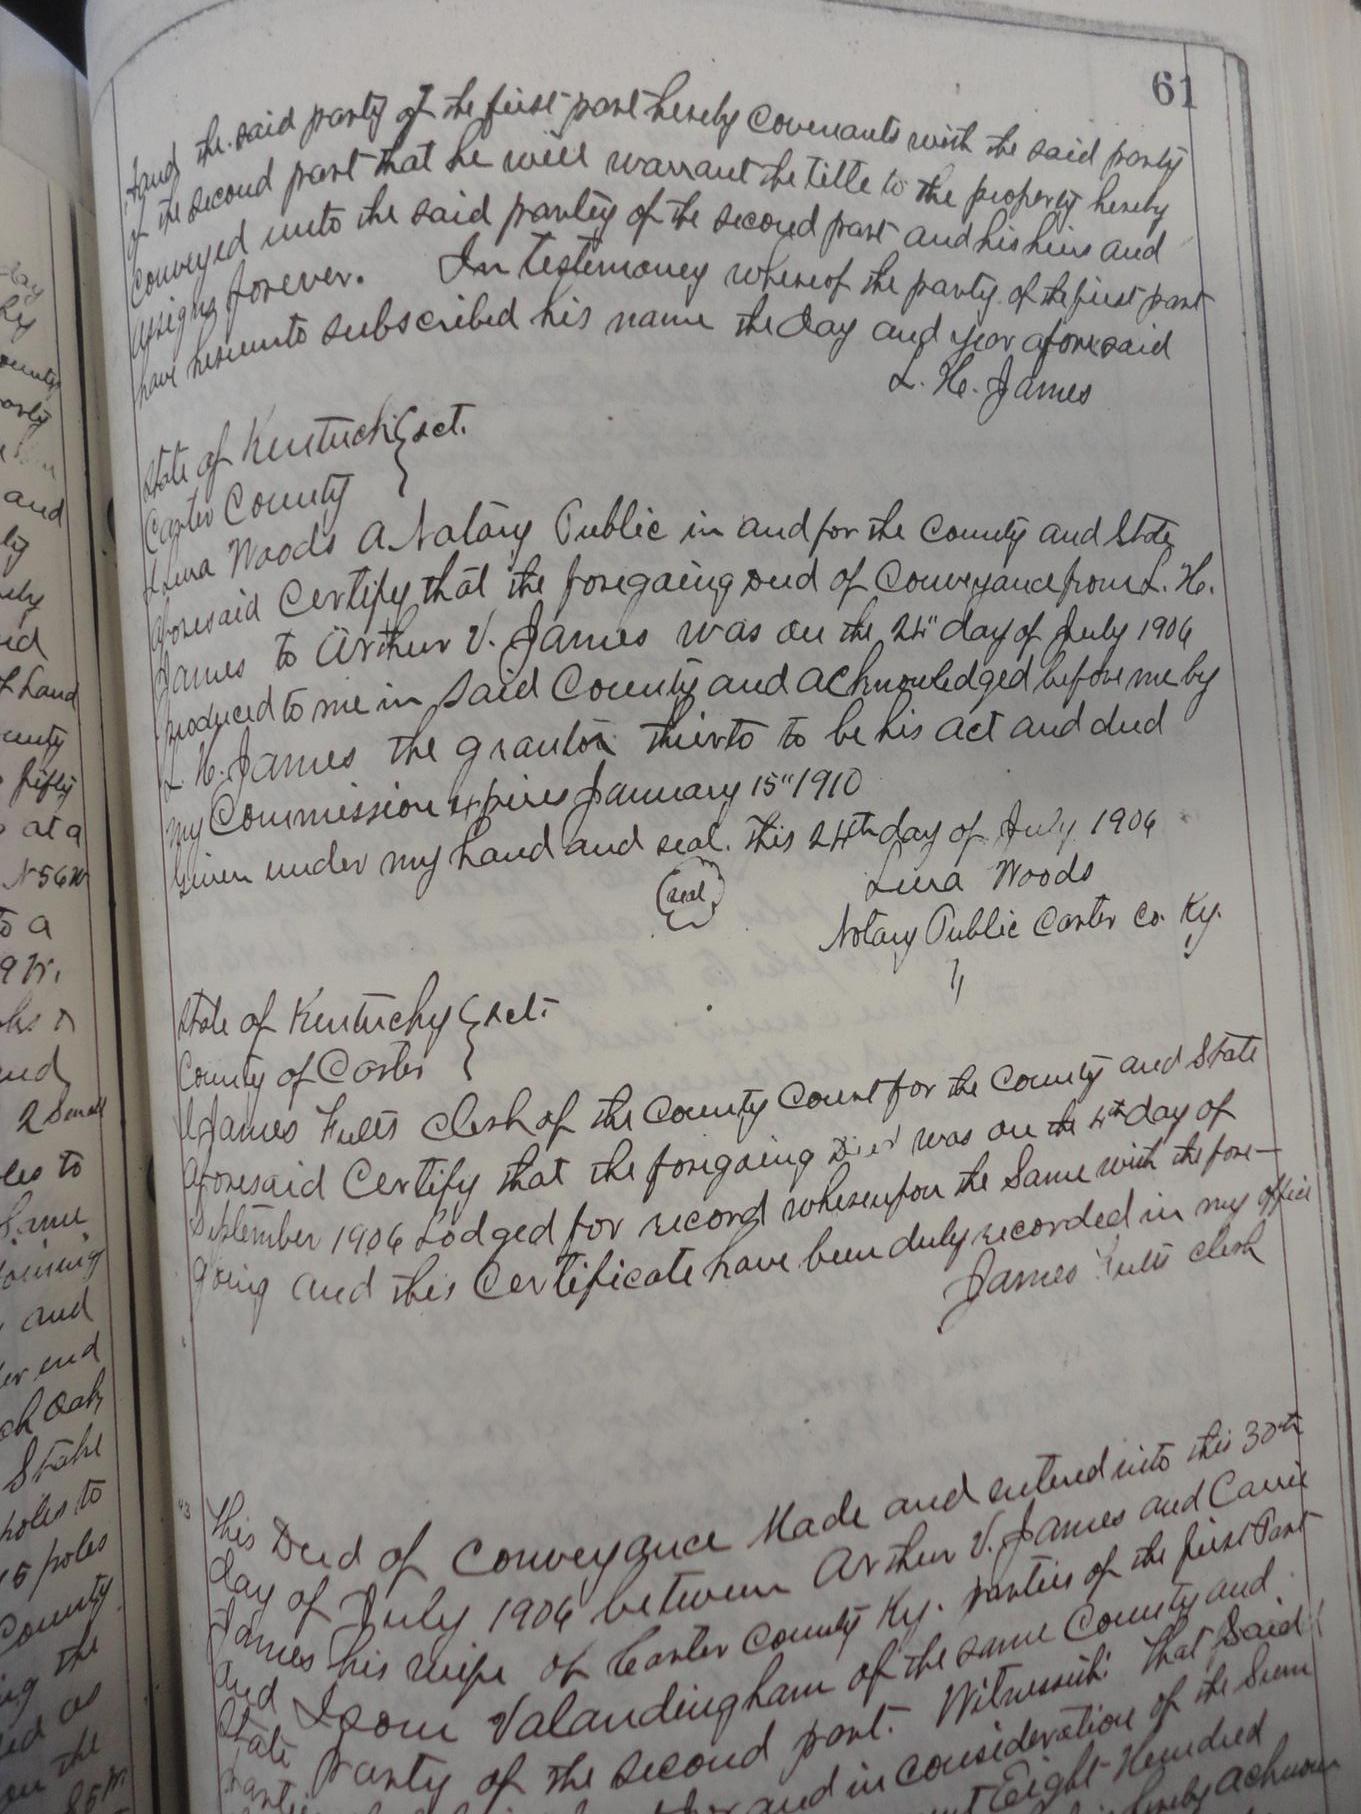 61
And the said party of the first part hereby covenants with the said party
of the second part that he will warrant the title to the property hereby
conveyed unto the said partey of the second part and his heirs and
assigns forever. In Testemoney whereof the party of the first part
have hereunto subscribed his name the day and year aforesaid
L. H. James
State of Kentucky } sct.
Carter County
I Lura Woods a Notary Public in and for the County and State
aforesaid Certify that the foregoing Deed of Conveyance from L. H.
James to Arthur V. James was on the 24" day of July 1906
produced to me in said County and acknowledged before me by
L. H. James the grantor thereto to be his act and deed
my Commission expires January 15" 1910
Given under my hand and seal. this 24th day of July 1906
(seal) Lura Woods
Notary Public Carter Co. Ky.
State of Kentucky } sct.
County of Carter
I James Fults Clerk of the County Court for the County and State
aforesaid Certify that the foregoing Deed was on the 4th day of
September 1906 Lodged for record whereupon the Same with the fore-
going and this Certificate have been duly recorded in my office
James Fults Clerk
This Deed of Conveyance Made and entered into this 30th
day of July 1906 between Arthur V. James and Carrie
James his wife of Carter County Ky. parties of the first Part
and Isom Valandingham of the same County and
State Party of the second part. Witnesseth: That Said
and in consideration of the Sum
Eight Hundred
hereby acknow
day
by
ounty
arty
and
ly
of Land
ounty
fifty
at a
N56W
to a
and
2 Small
les to
Same
joining
and
er end
ck Oak
Stake
poles to
15 poles
County
ing the
ed as
on the